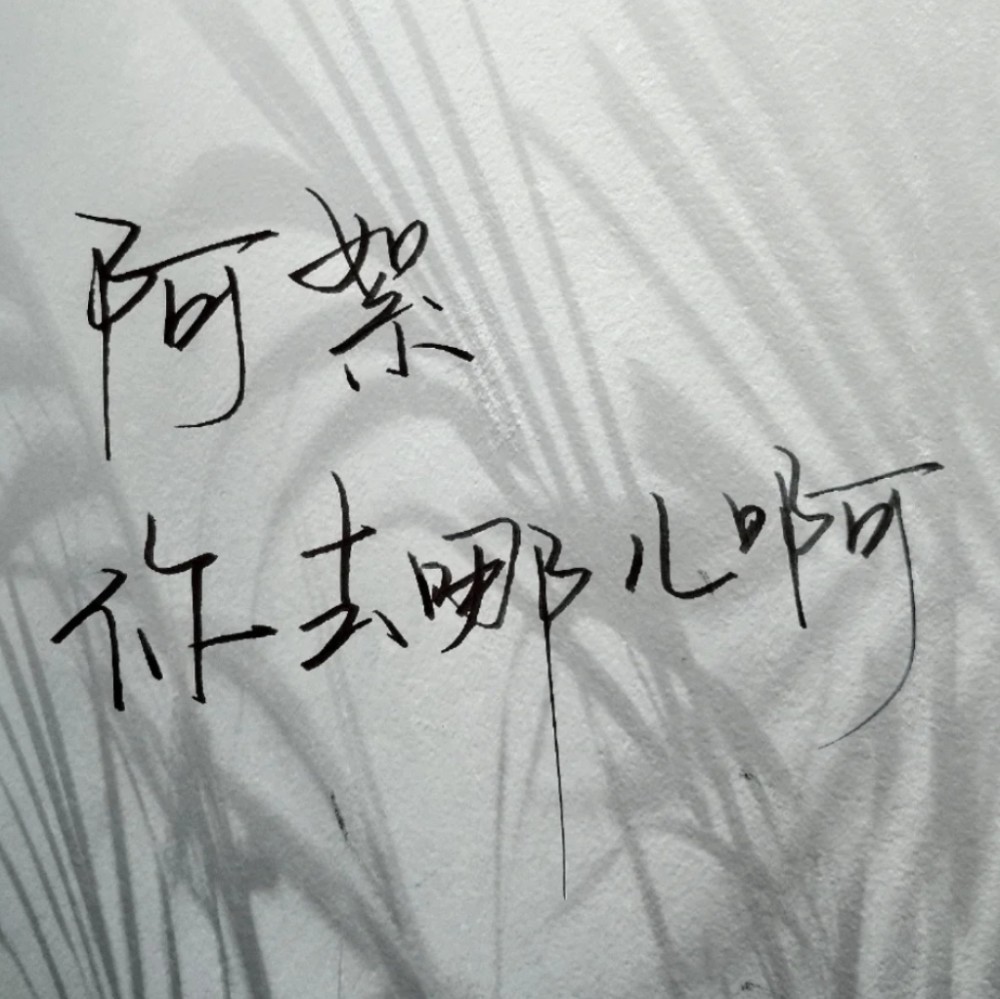 阿絮
你去哪儿啊